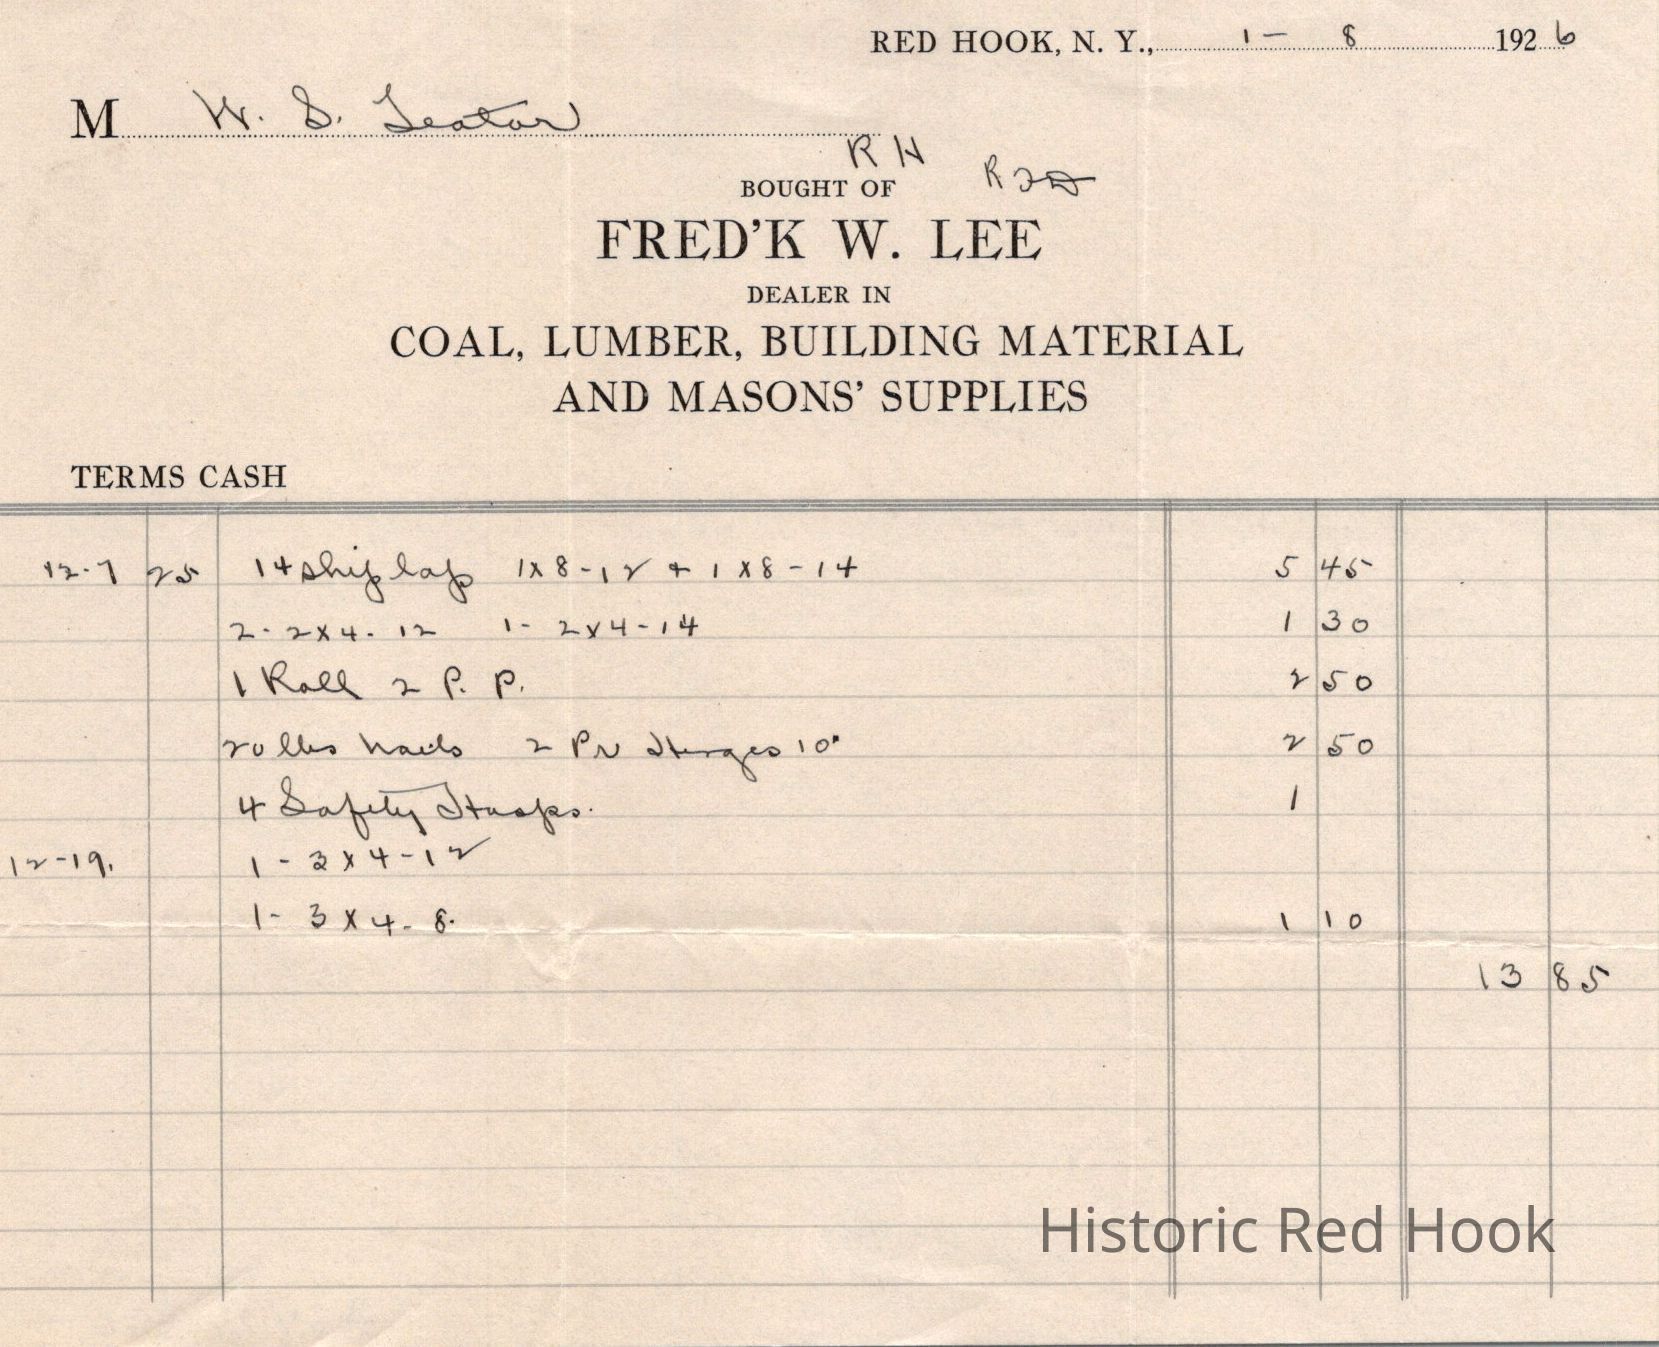 RED HOOK, N. Y., 1 - 8 1926
M W. S. Teator
R H
BOUGHT OF R2D
FRED'K W. LEE
DEALER IN
COAL, LUMBER, BUILDING MATERIAL
AND MASONS' SUPPLIES
TERMS CASH
12-7 25 14 ship lap 1x8-12 + 1x8-14 5 45
2-2x4-12 1-2x4-14 1 30
1 Roll 2 P. P. 2 50
20 lbs nails 2 Pr Hinges 10" 2 50
4 Safety Hasps. 1
12-19. 1-3x4-12
1-3x4-8. 1 10
13 85
Historic Red Hook